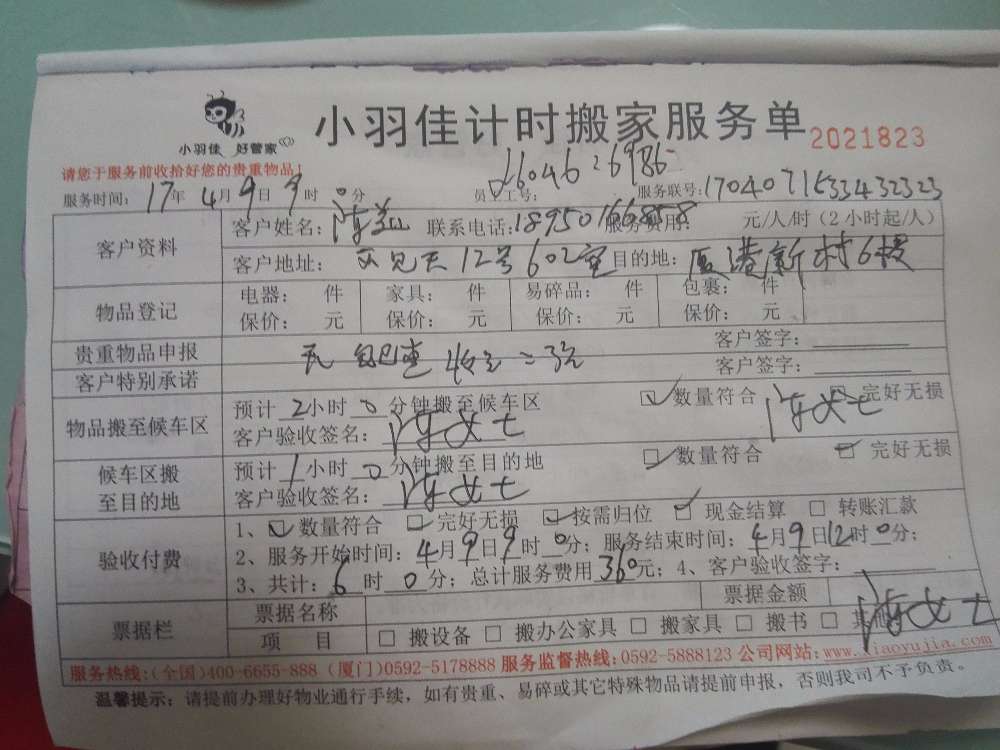 小羽佳计时搬家服务单 2021823
小羽佳 好管家
请您于服务前收拾好您的贵重物品!
服务时间: 17年 4月 9日 9时 0分 员工工号: 服务联号:
客户资料 客户姓名: 联系电话: 服务费用: 元/人/时 (2小时起/人)
客户地址: 12号602室 目的地: 厦港新村6楼
物品登记 电器: 件 家具: 件 易碎品: 件 包裹: 件
保价: 元 保价: 元 保价: 元 保价: 元
贵重物品申报 客户签字:
客户特别承诺 无 客户签字:
物品搬至候车区 预计 2小时 0分钟搬至候车区 数量符合 完好无损
客户验收签名: 陈女士 陈女士
候车区搬至目的地 预计 1小时 0分钟搬至目的地 数量符合 完好无损
客户验收签名: 陈女士
验收付费 1、 数量符合 完好无损 按需归位 现金结算 转账汇款
2、服务开始时间: 4月9日9时0分; 服务结束时间: 4月9日12时0分;
3、共计: 6时0分; 总计服务费用360元; 4、客户验收签字:
陈女士
票据栏 票据名称 票据金额
项 目 搬设备 搬办公家具 搬家具 搬书
服务热线:(全国)400-6655-888 (厦门)0592-5178888 服务监督热线:0592-5888123 公司网站:www.xiaoyujia.com
温馨提示: 请提前办理好物业通行手续, 如有贵重、易碎或其它特殊物品请提前申报, 否则我司不予负责。